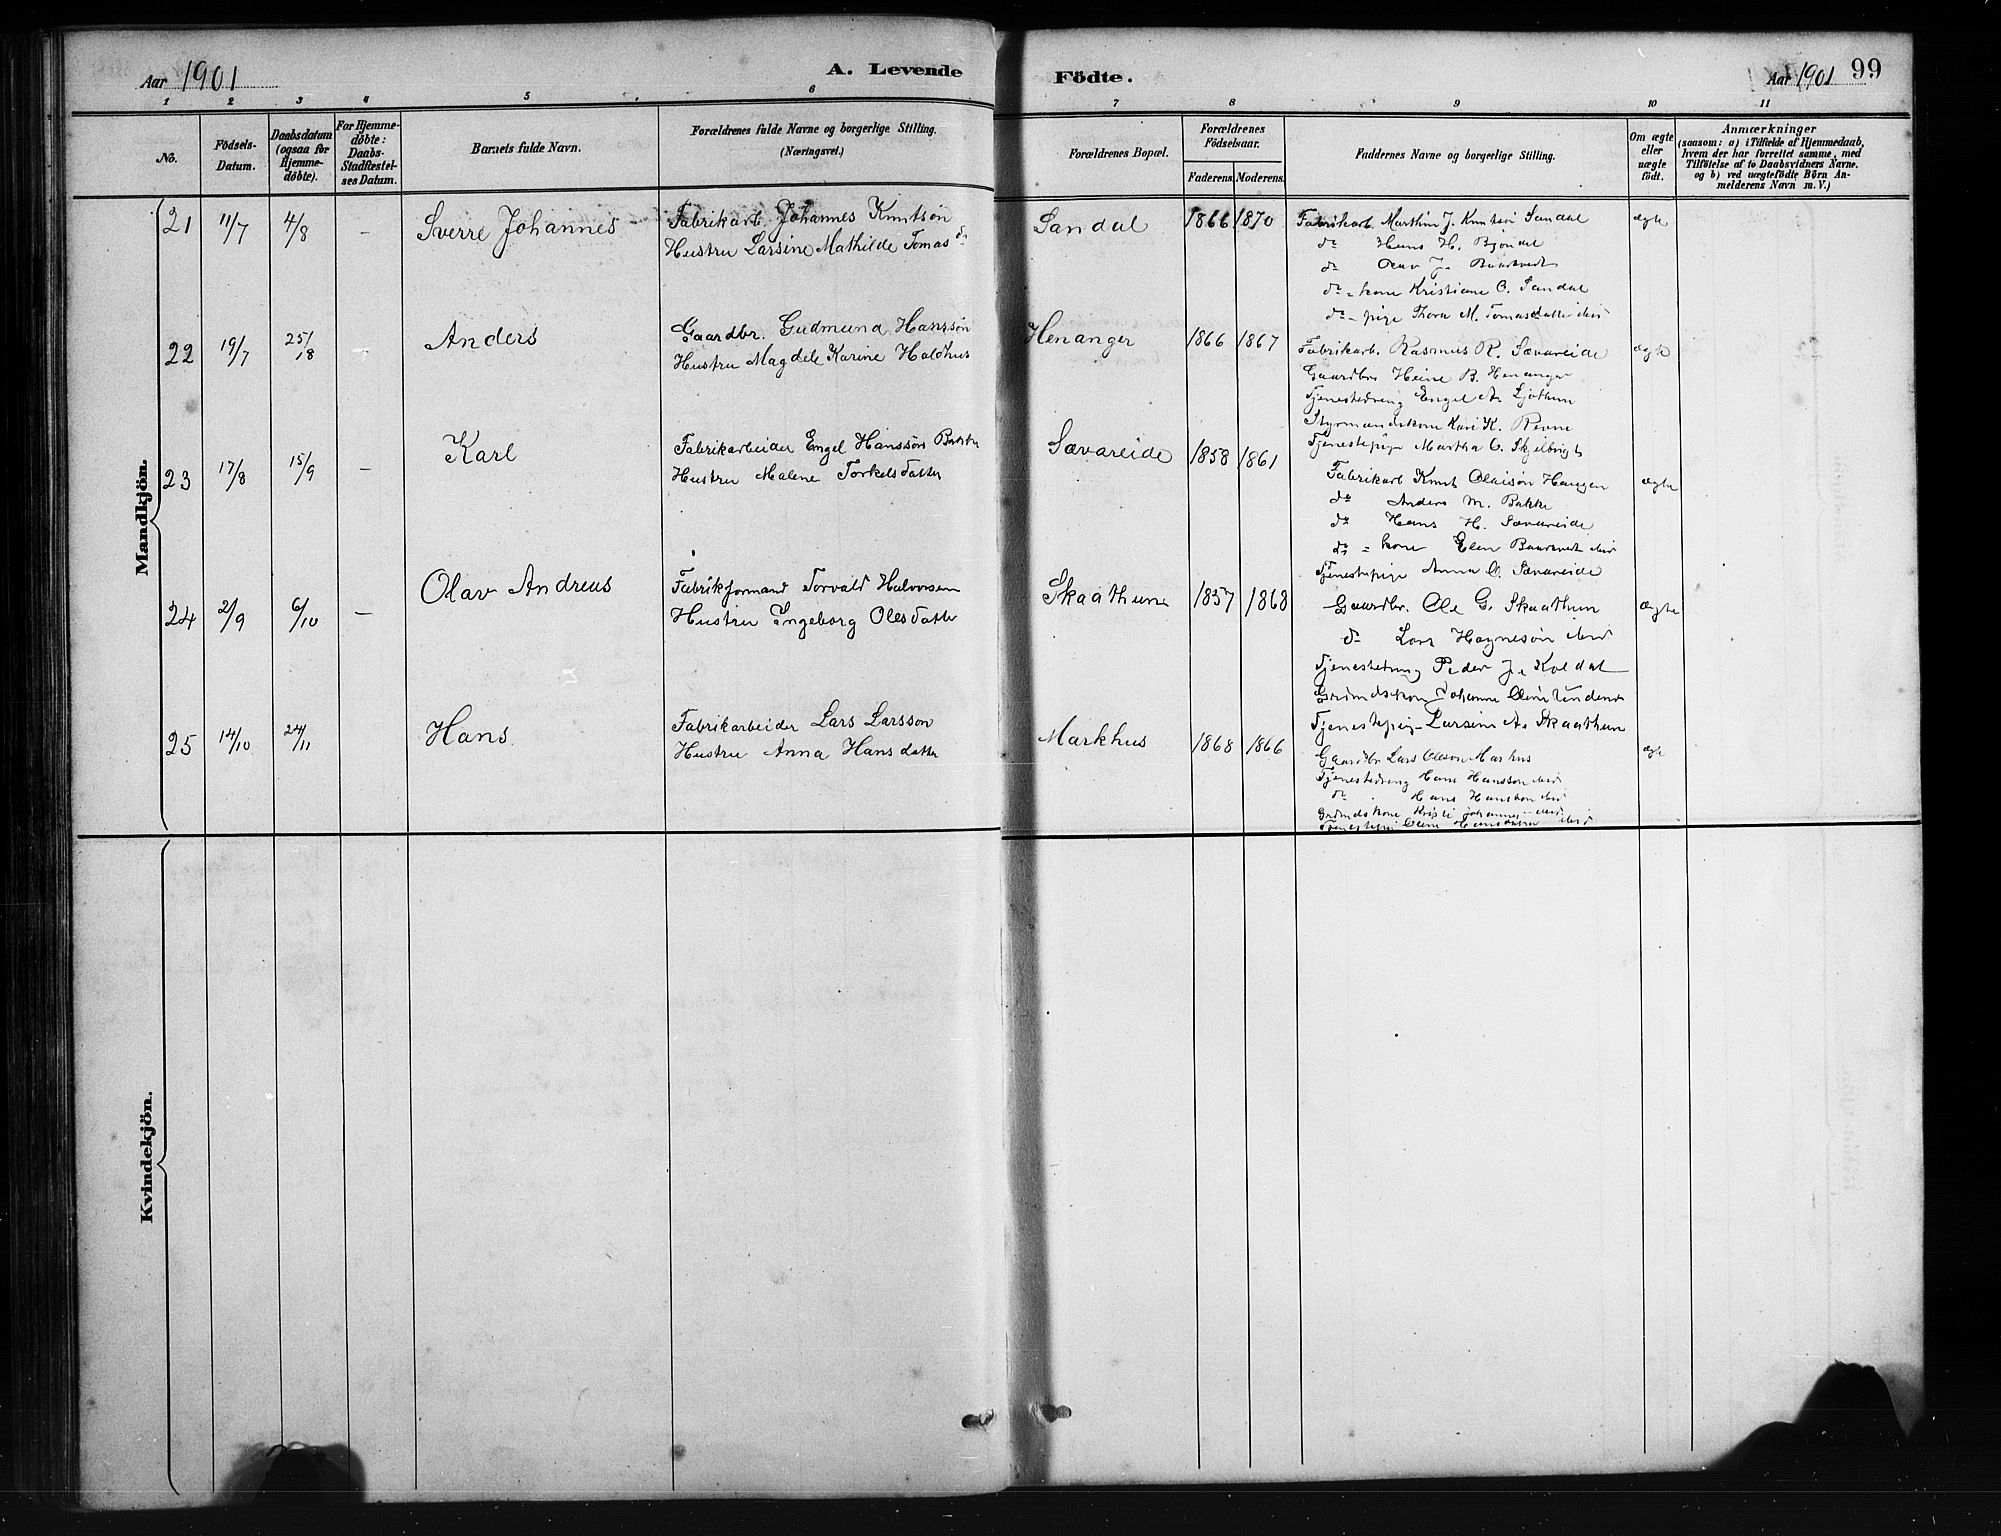 Aar 1901
A. Levende
Födte.
Aar 1901
99
1 2 3 4 5 6 7 8 9 10 11
No.
Födsels-Datum.
Daabsdatum (ogsaa for Hjemme-döbte).
For Hjemme-döbte: Daabs-Stadfæstel-ses Datum.
Barnets fulde Navn.
Forældrenes fulde Navne og borgerlige Stilling.
(Næringsvei.)
Forældrenes Bopæl.
Forældrenes Födselsaar.
Faderens. Moderens.
Faddernes Navne og borgerlige Stilling.
Om ægte eller uægte födt.
Anmærkninger
(saasom: a) i Tilfælde af Hjemmedaab,
hvem der har forrettet samme, med
Tilföielse af to Daabsvidners Navne,
og b) ved uægtefödte Börn An-
melderens Navn m. V.)
Mandkjön.
21 11/7 4/8 – Sverre Johannes
Fabrikarb. Johannes Knutsön
Hustru Larsine Mathilde Tomasdr
Sandal 1866 1870
Fabrikarb. Marthin J. Knutsön Sandal
do Hans H. Bjöndal
do Olav J.
do - kone Kristiane O. Sandal
do - pige Thora M. Tomasdatter
ægte
22 19/7 25/8 Anders
Gaardbr. Gudmund Hanssön
Hustru Magdele Karine Haldhus
Henanger 1866 1867
Fabrikarb. Rasmus R. Sævareide
Gaardbr Heine B. Henanger
Tjenestedreng Engel A.
Styrmandskone Kari K. Revne
Tjenestepige Martha O.
ægte
23 17/8 15/9 – Karl
Fabrikarbeider Engel Hanssön Bakke
Hustru Malene Torkelsdatter
Sævareide 1858 1861
Fabrikarb Knut Olaisön Haugen
do Anders M. Bakke
do Hans H. Sævareide
do - kone Elen
Tjenestepige Anna O. Sævareide
ægte
24 2/9 6/10 – Olav Andreas
Fabrikformand Torvald Halvorsen
Hustru Ingeborg Olesdatter
Skaathun 1857 1868
Gaardbr. Ole G. Skaathun
do Lars
Tjenestedreng Peder J. Koldal
Johanne
Tjenestepig Larsine A. Skaathun
ægte
25 14/10 24/11 Hans
Fabrikarbeider Lars Larsson
Hustru Anna Hansdatter
Markhus 1868 1866
Gaardbr Lars Oleson Markus
Tjenestedreng Hans Hansson
do Hans Hansson
Kristi Johannes
Tjenestepig Oline Hansdatter
ægte
Kvindekjön.